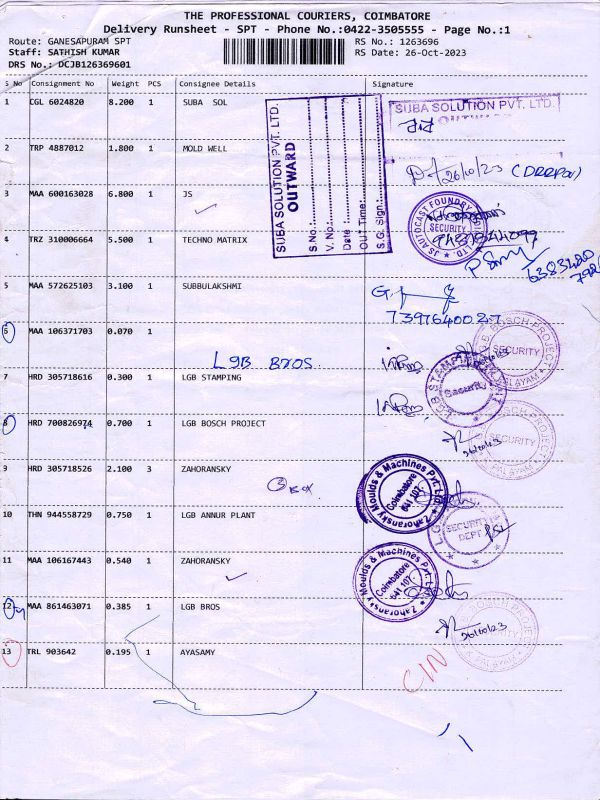 THE PROFESSIONAL COURIERS, COIMBATORE
Delivery Runsheet - SPT - Phone No.:0422-3505555 - Page No.:1
Route: GANESAPURAM SPT
RS No.: 1263696
Staff: SATHISH KUMAR
RS Date: 26-Oct-2023
DRS No.: DCJB126369601
S No Consignment No Weight PCS Consignee Details Signature
1 CGL 6024820 8.200 1 SUBA SOL
SUBA SOLUTION PVT. LTD.
OUTWARD
S.No.:
V. No.:
Date :
OUT Time:
S.G. Sign.:
SUBA SOLUTION PVT. LTD.
OUTWARD
2 TRP 4887012 1.800 1 MOLD WELL
26/10/23
3 MAA 600163028 6.800 1 JS
JS AUTOCAST FOUNDRY
SECURITY
4 TRZ 310006664 5.500 1 TECHNO MATRIX
5 MAA 572625103 3.100 1 SUBBULAKSHMI
7397640027
6 MAA 106371703 0.070 1
LGB BROS
LGB BOSCH PROJECT
SECURITY
7 HRD 305718616 0.300 1 LGB STAMPING
Security
8 HRD 700826974 0.700 1 LGB BOSCH PROJECT
26/10/23
SECURITY
9 HRD 305718526 2.100 3 ZAHORANSKY
3 BOX
Zahoransky Moulds & Machines Pvt. Ltd
Coimbatore
641 107.
10 THN 944558729 0.750 1 LGB ANNUR PLANT
SECURITY
DEPT.
11 MAA 106167443 0.540 1 ZAHORANSKY
Zahoransky Moulds & Machines Pvt. Ltd
Coimbatore
641 107.
12 MAA 861463071 0.385 1 LGB BROS
26/10/23
13 TRL 903642 0.195 1 AYASAMY
CIN